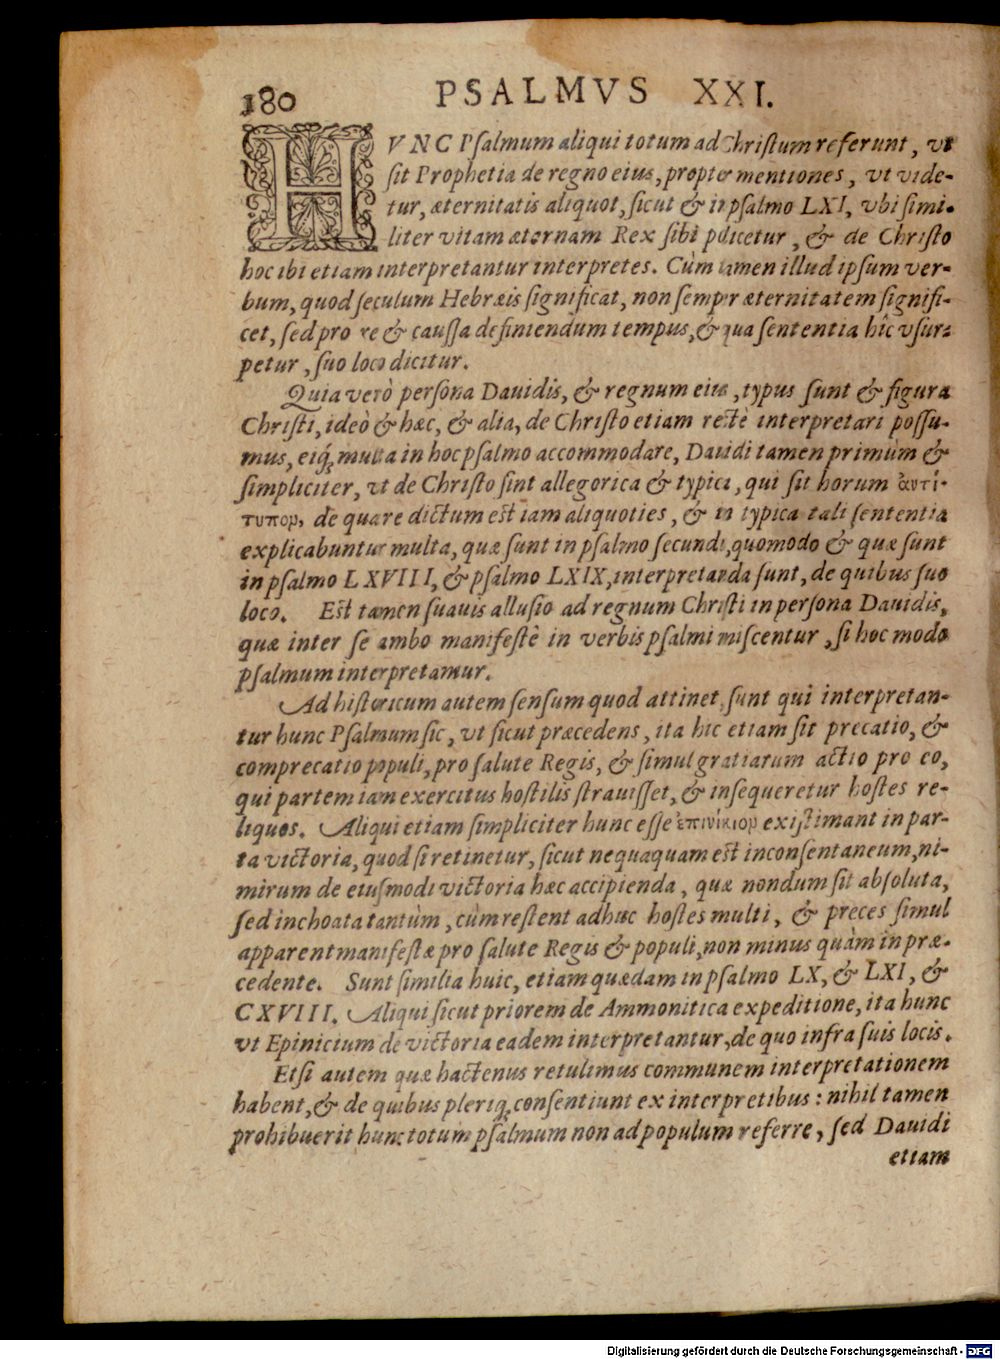 180 PSALMVS XXI.
HVNC Psalmum aliqui totum ad Christum referunt, vt
sit Prophetia de regno eius, propter mentiones, vt vide-
tur, æternitatis aliquot, sicut & in psalmo LXI, vbi simi-
liter vitam æternam Rex sibi pdicetur, & de Christo
hoc ibi etiam interpretantur interpretes. Cùm tamen illud ipsum ver-
bum, quod seculum Hebræis significat, non semper æternitatem signifi-
cet, sed pro re & caussa definiendum tempus, & qua sententia hîc vsur-
petur, suo loco dicitur.
Quia verò persona Dauidis, & regnum eius, typus sunt & figura
Christi, ideò & hæc, & alia, de Christo etiam rectè interpretari possu-
mus, eiq́; multa in hoc psalmo accommodare, Dauidi tamen primùm &
simpliciter, vt de Christo sint allegorica & typica, qui sit horum ἀντί-
τυπον, de quare dictum est iam aliquoties, & in typica tali sententia
explicabuntur multa, quæ sunt in psalmo secundi, quomodo & quæ sunt
in psalmo LXVIII, & psalmo LXIX, interpretanda sunt, de quibus suo
loco. Est tamen suauis allusio ad regnum Christi in persona Dauidis,
quæ inter se ambo manifestè in verbis psalmi miscentur, si hoc modo
psalmum interpretamur.
Ad historicum autem sensum quod attinet, sunt qui interpretan-
tur hunc Psalmum sic, vt sicut præcedens, ita hic etiam sit precatio, &
comprecatio populi, pro salute Regis, & simul gratiarum actio pro eo,
qui partem iam exercitus hostilis strauisset, & insequeretur hostes re-
liquos. Aliqui etiam simpliciter hunc esse ἐπινίκιον existimant in par-
ta victoria, quod si retinetur, sicut nequaquam est inconsentaneum, ni-
mirum de eiusmodi victoria hæc accipienda, quæ nondum sit absoluta,
sed inchoata tantùm, cùm restent adhuc hostes multi, & preces simul
apparent manifestæ pro salute Regis & populi, non minus quàm in præ-
cedente. Sunt similia huic, etiam quædam in psalmo LX, & LXI, &
CXVIII. Aliqui sicut priorem de Ammonitica expeditione, ita hunc
vt Epinicium de victoria eadem interpretantur, de quo infra suis locis.
Etsi autem quæ hactenus retulimus communem interpretationem
habent, & de quibus pleriq́; consentiunt ex interpretibus: nihil tamen
prohibuerit hunc totum psalmum non ad populum referre, sed Dauidi
etiam
Digitalisierung gefördert durch die Deutsche Forschungsgemeinschaft - DFG